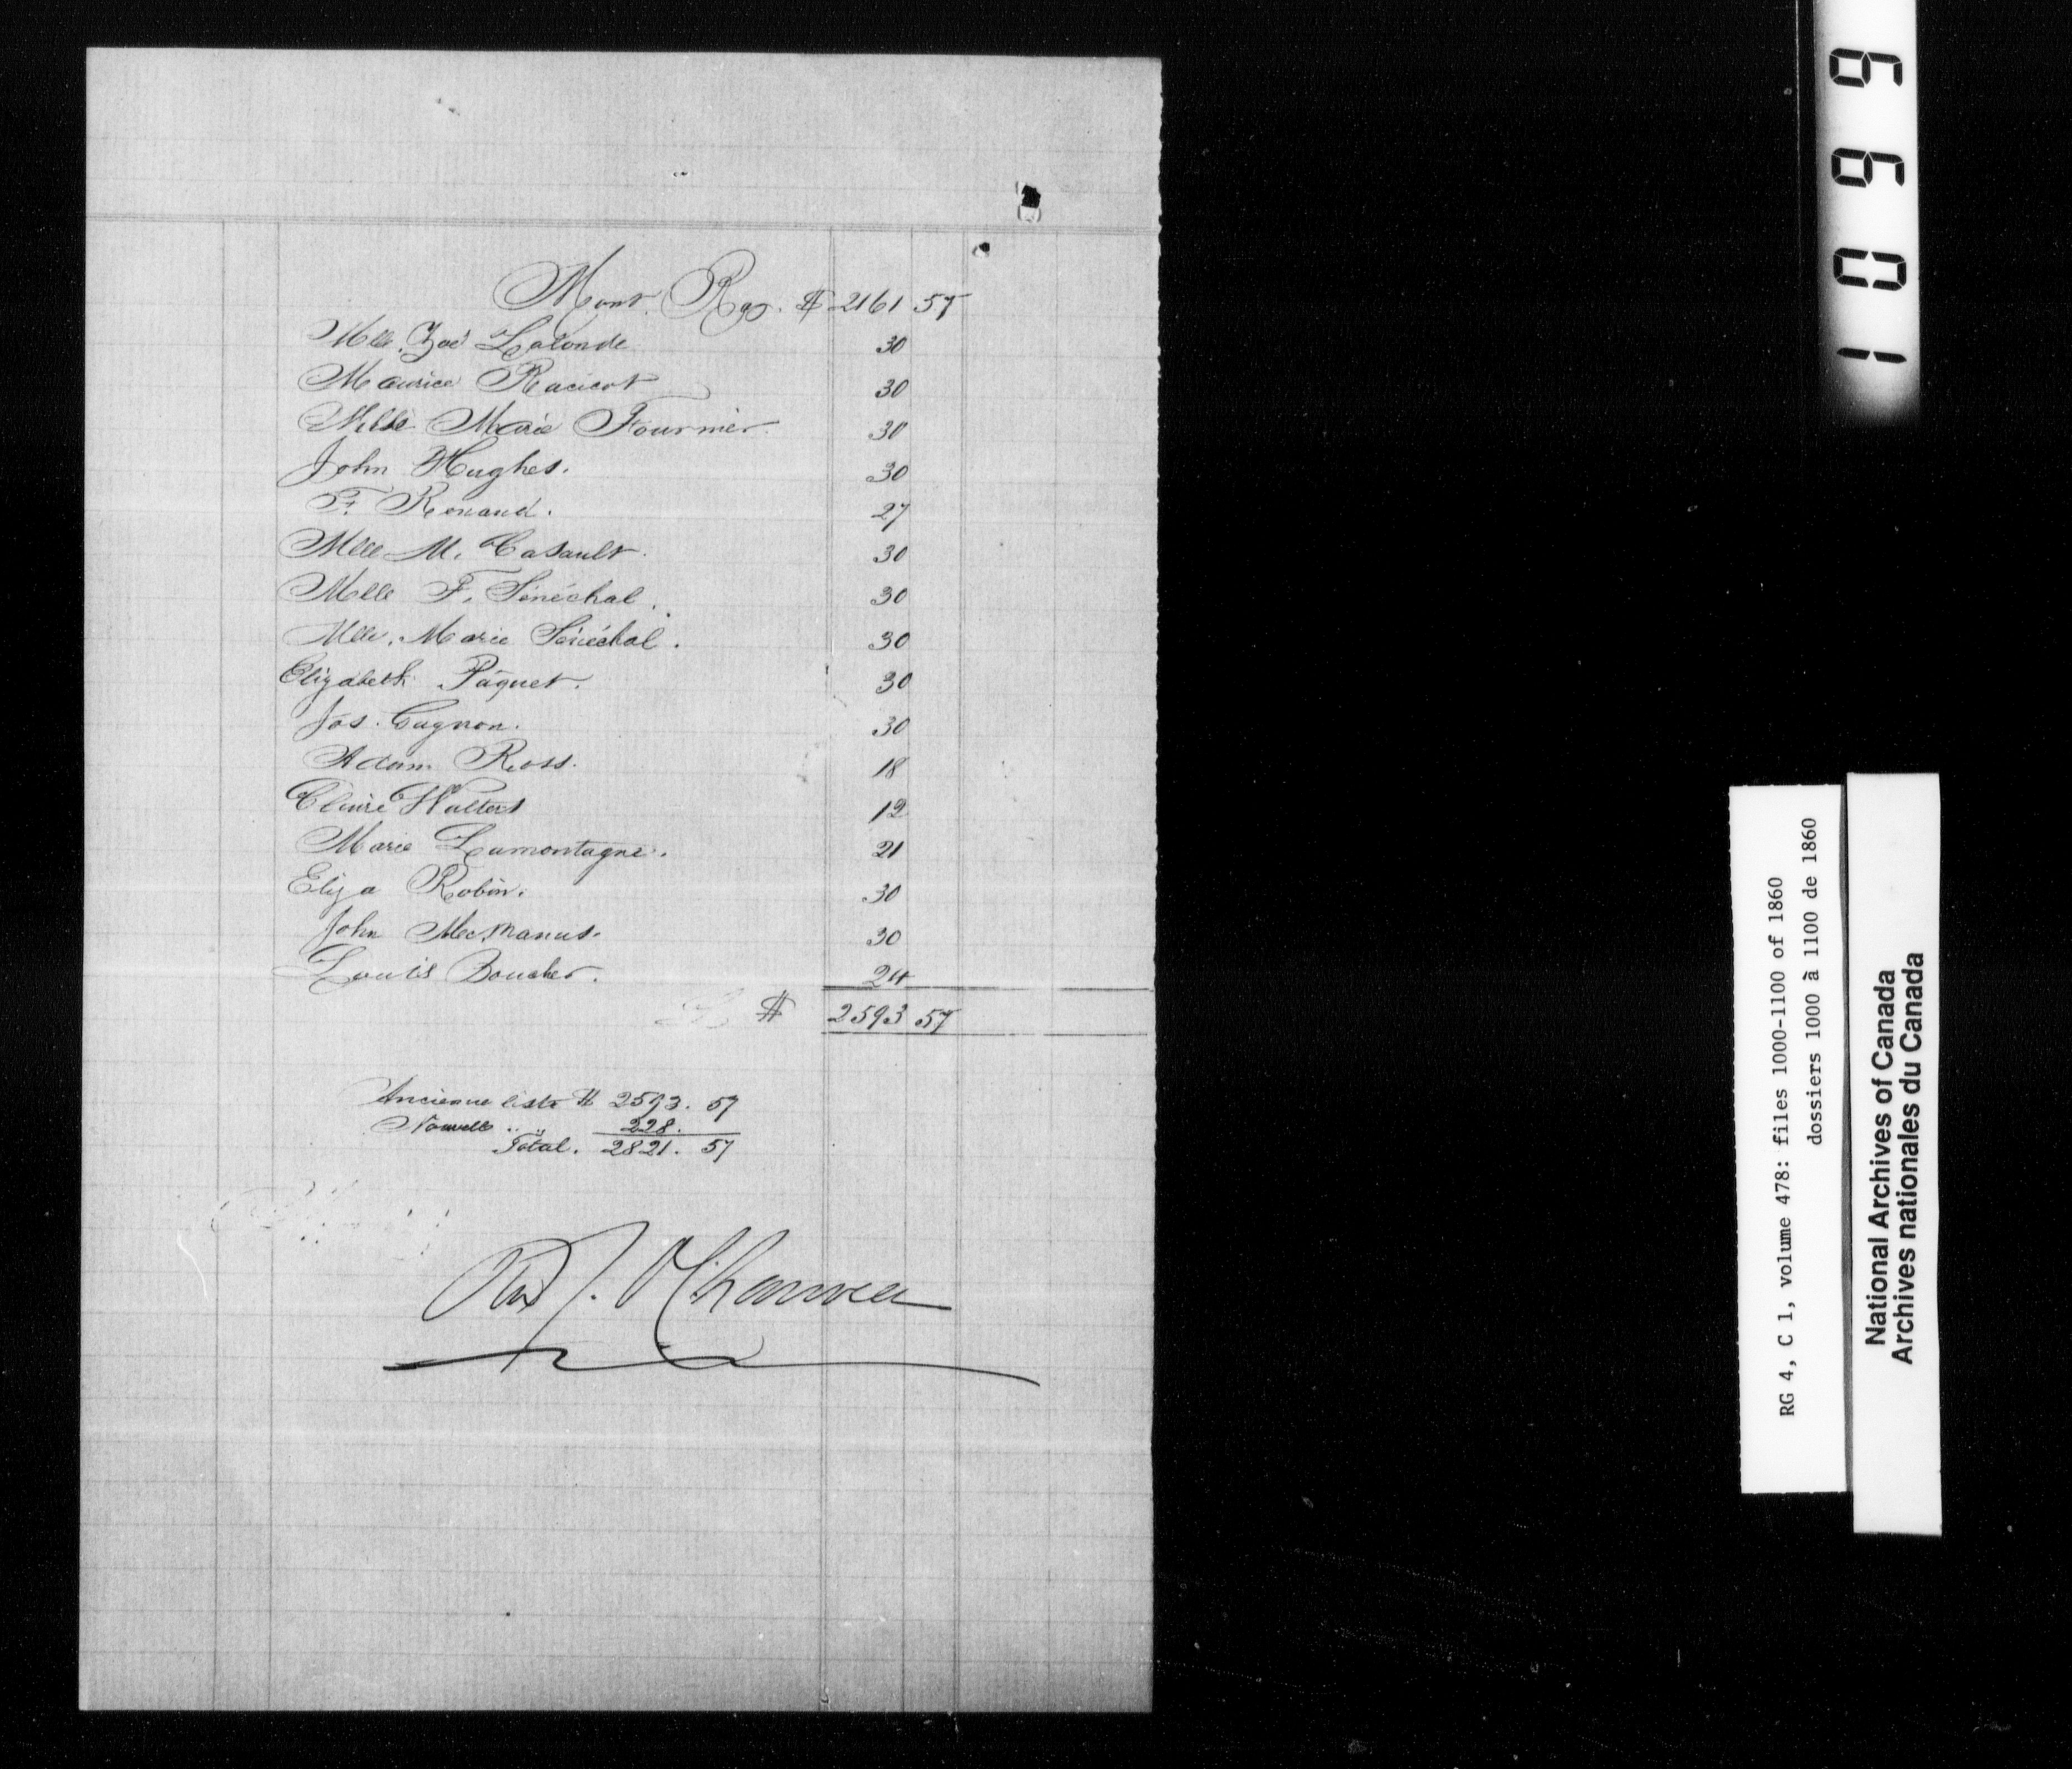 Mont. Rap. $ 2161 57
Mlle. Zoé Lalonde 30
Maurice Racicot 30
Mlle Marie Fournier. 30
John Hughes. 30
F. Renaud. 27
Mlle M. Casault. 30
Mlle F. Sénéchal. 30
Mlle. Marie Sénéchal. 30
Elizabeth Paquet. 30
Jos. Gagnon. 30
Adam Ross. 18
Claire Walters 12
Marie Lamontagne. 21
Eliza Robin. 30
John MecManus. 30
Louis Boucher. 24
$ 2593 57
Ancienne liste $ 2593. 57
Nouvelle " " 228.
Total. 2821. 57
Pierre J. O. Chauveau
1099
RG 4, C 1, volume 478: files 1000-1100 of 1860
dossiers 1000 à 1100 de 1860
National Archives of Canada
Archives nationales du Canada